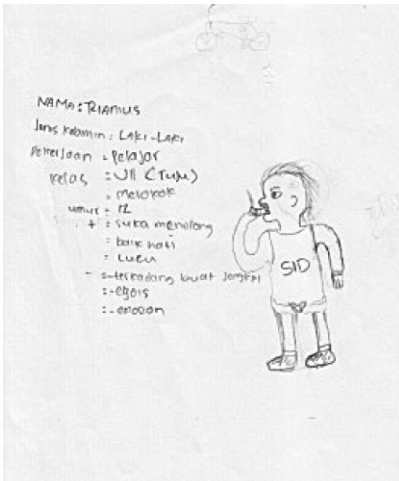 NAMA : RIAMUS
Jenis kelamin : Laki-Laki
Pekerjaan : Pelajar
kelas : VII (Tuju)
: merokok
umur : 12
+ : suka menolong
: baik hati
: Lucu
- :-terkadang buat jengkel
:-egois
:-emosian
SID